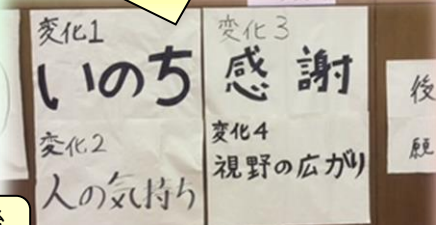 変化1
いのち
変化2
人の気持ち
変化3
感謝
変化4
視野の広がり
後
願